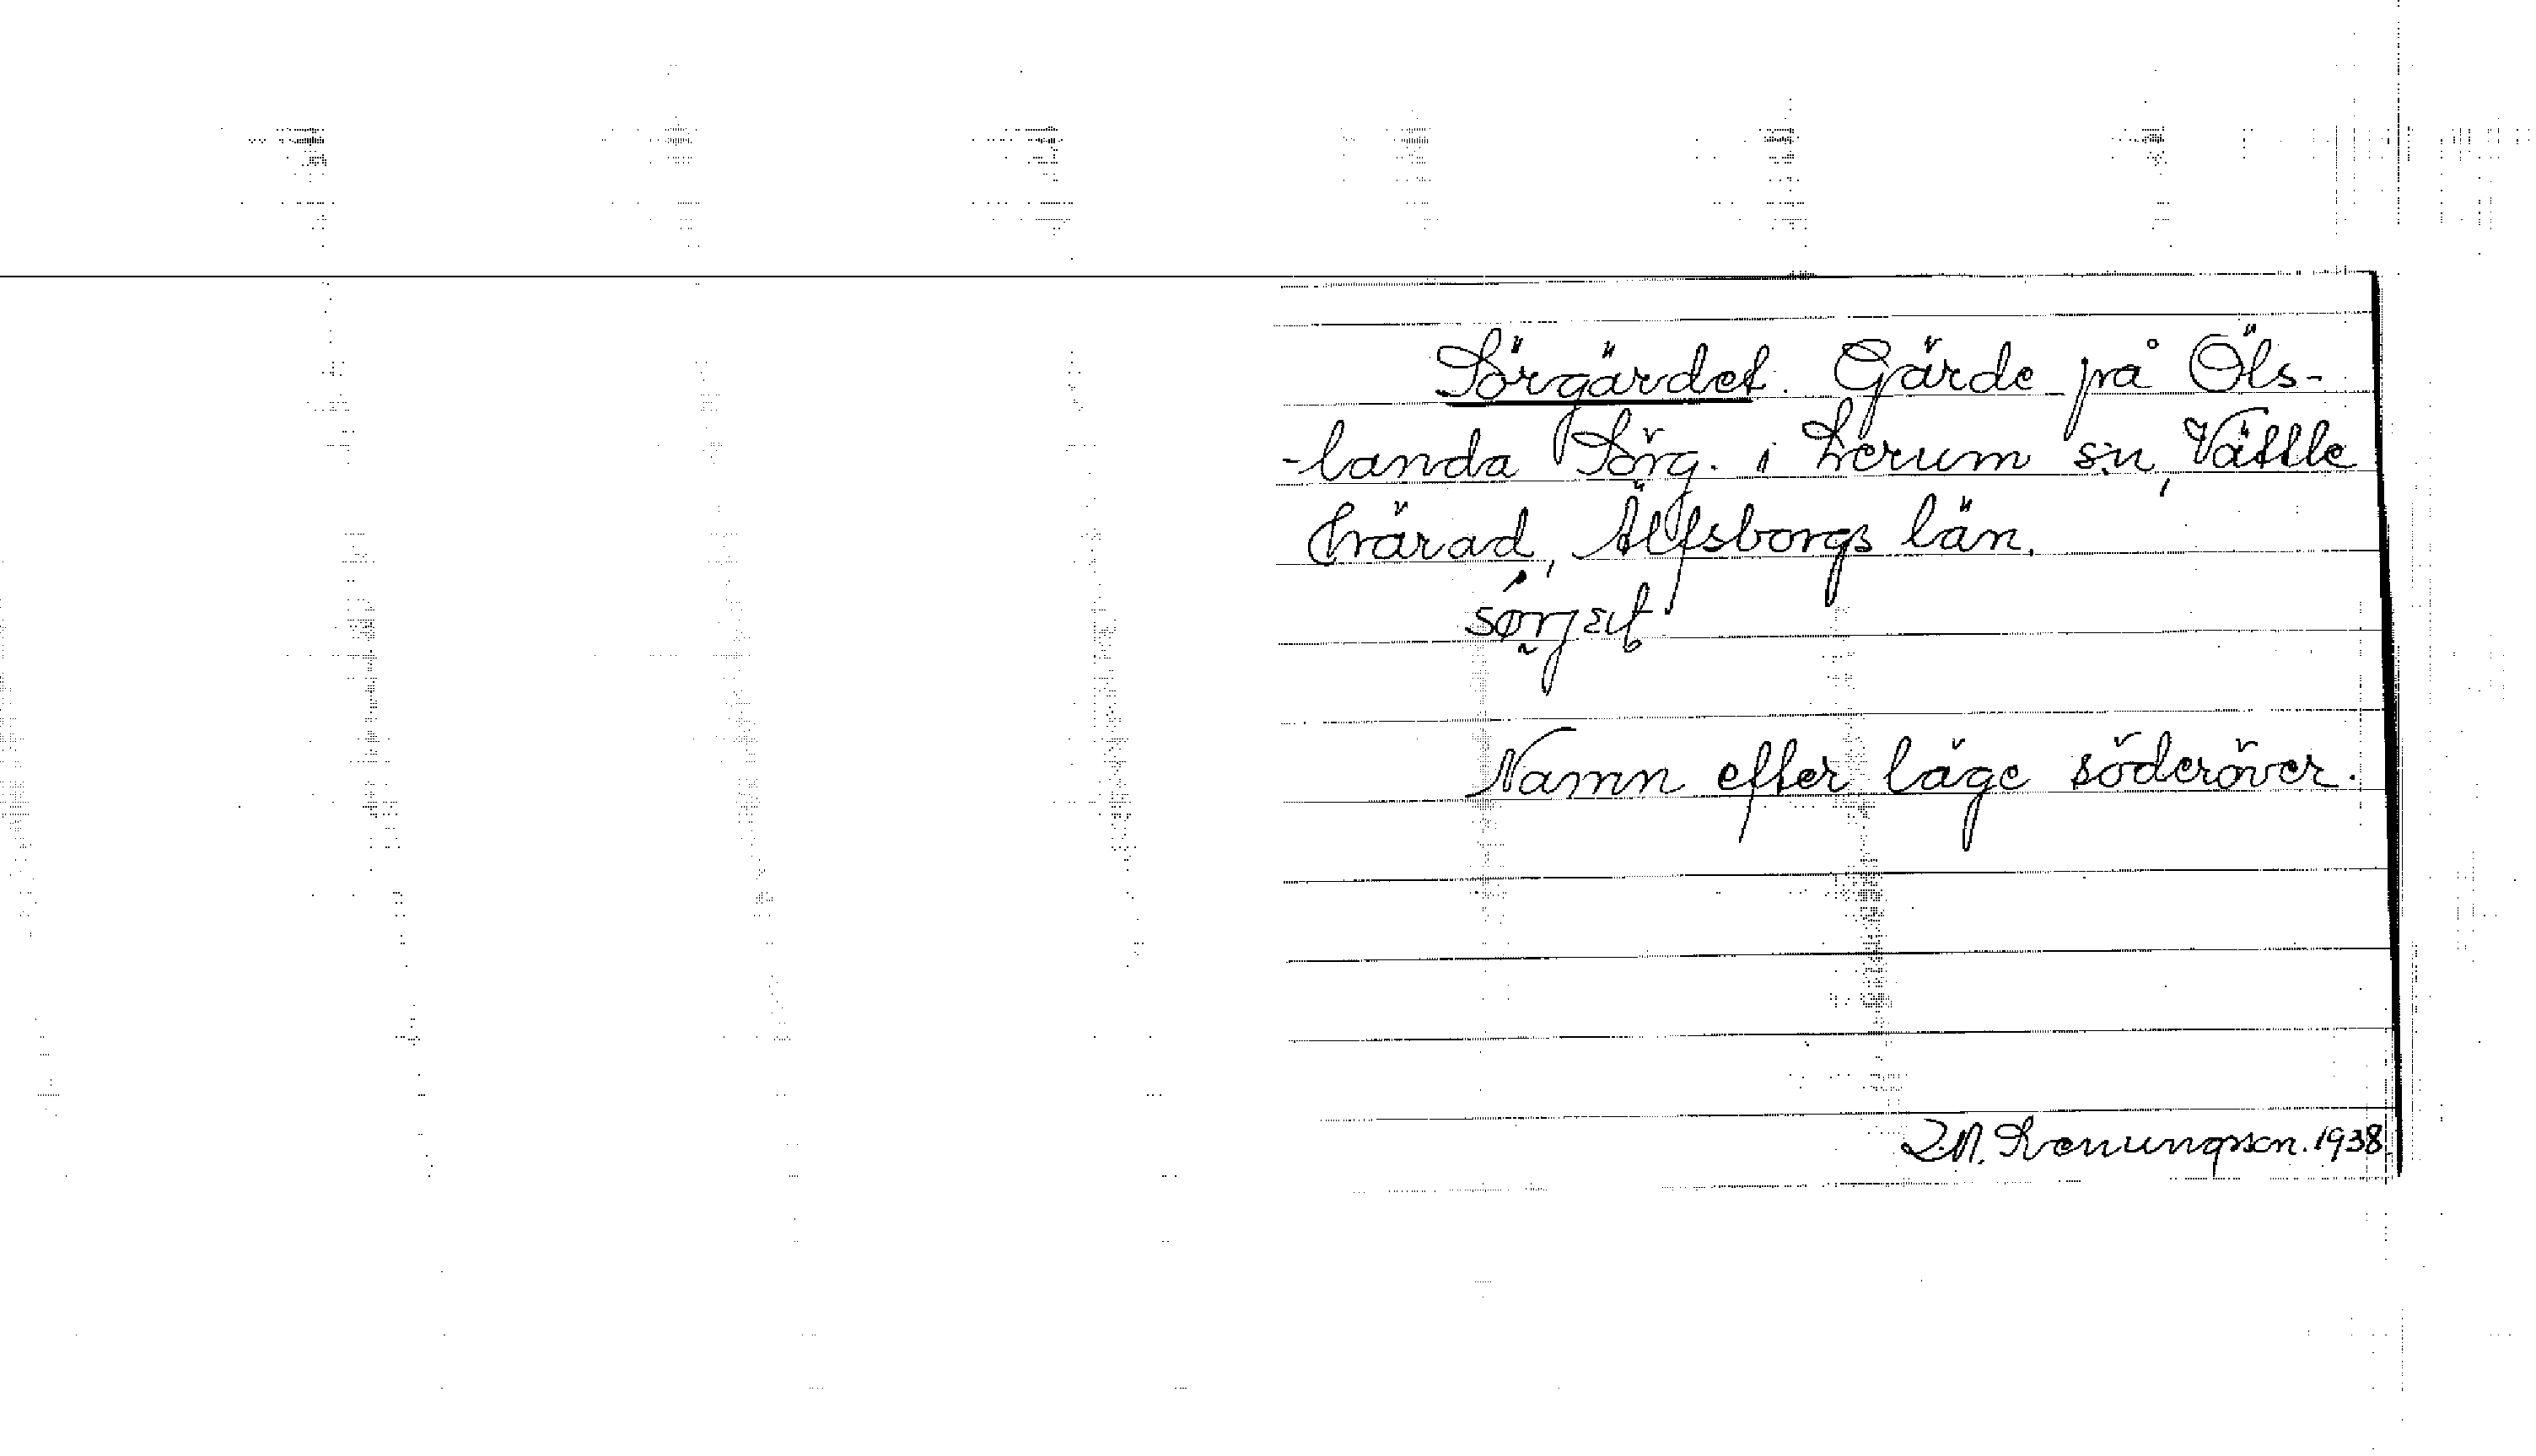 Sörgärdet. Gärde på Öls-
-landa Sörg. i Lerum sn, Vättle
härad, Älfsborgs län.
Namn efter läge söderöver.
1938